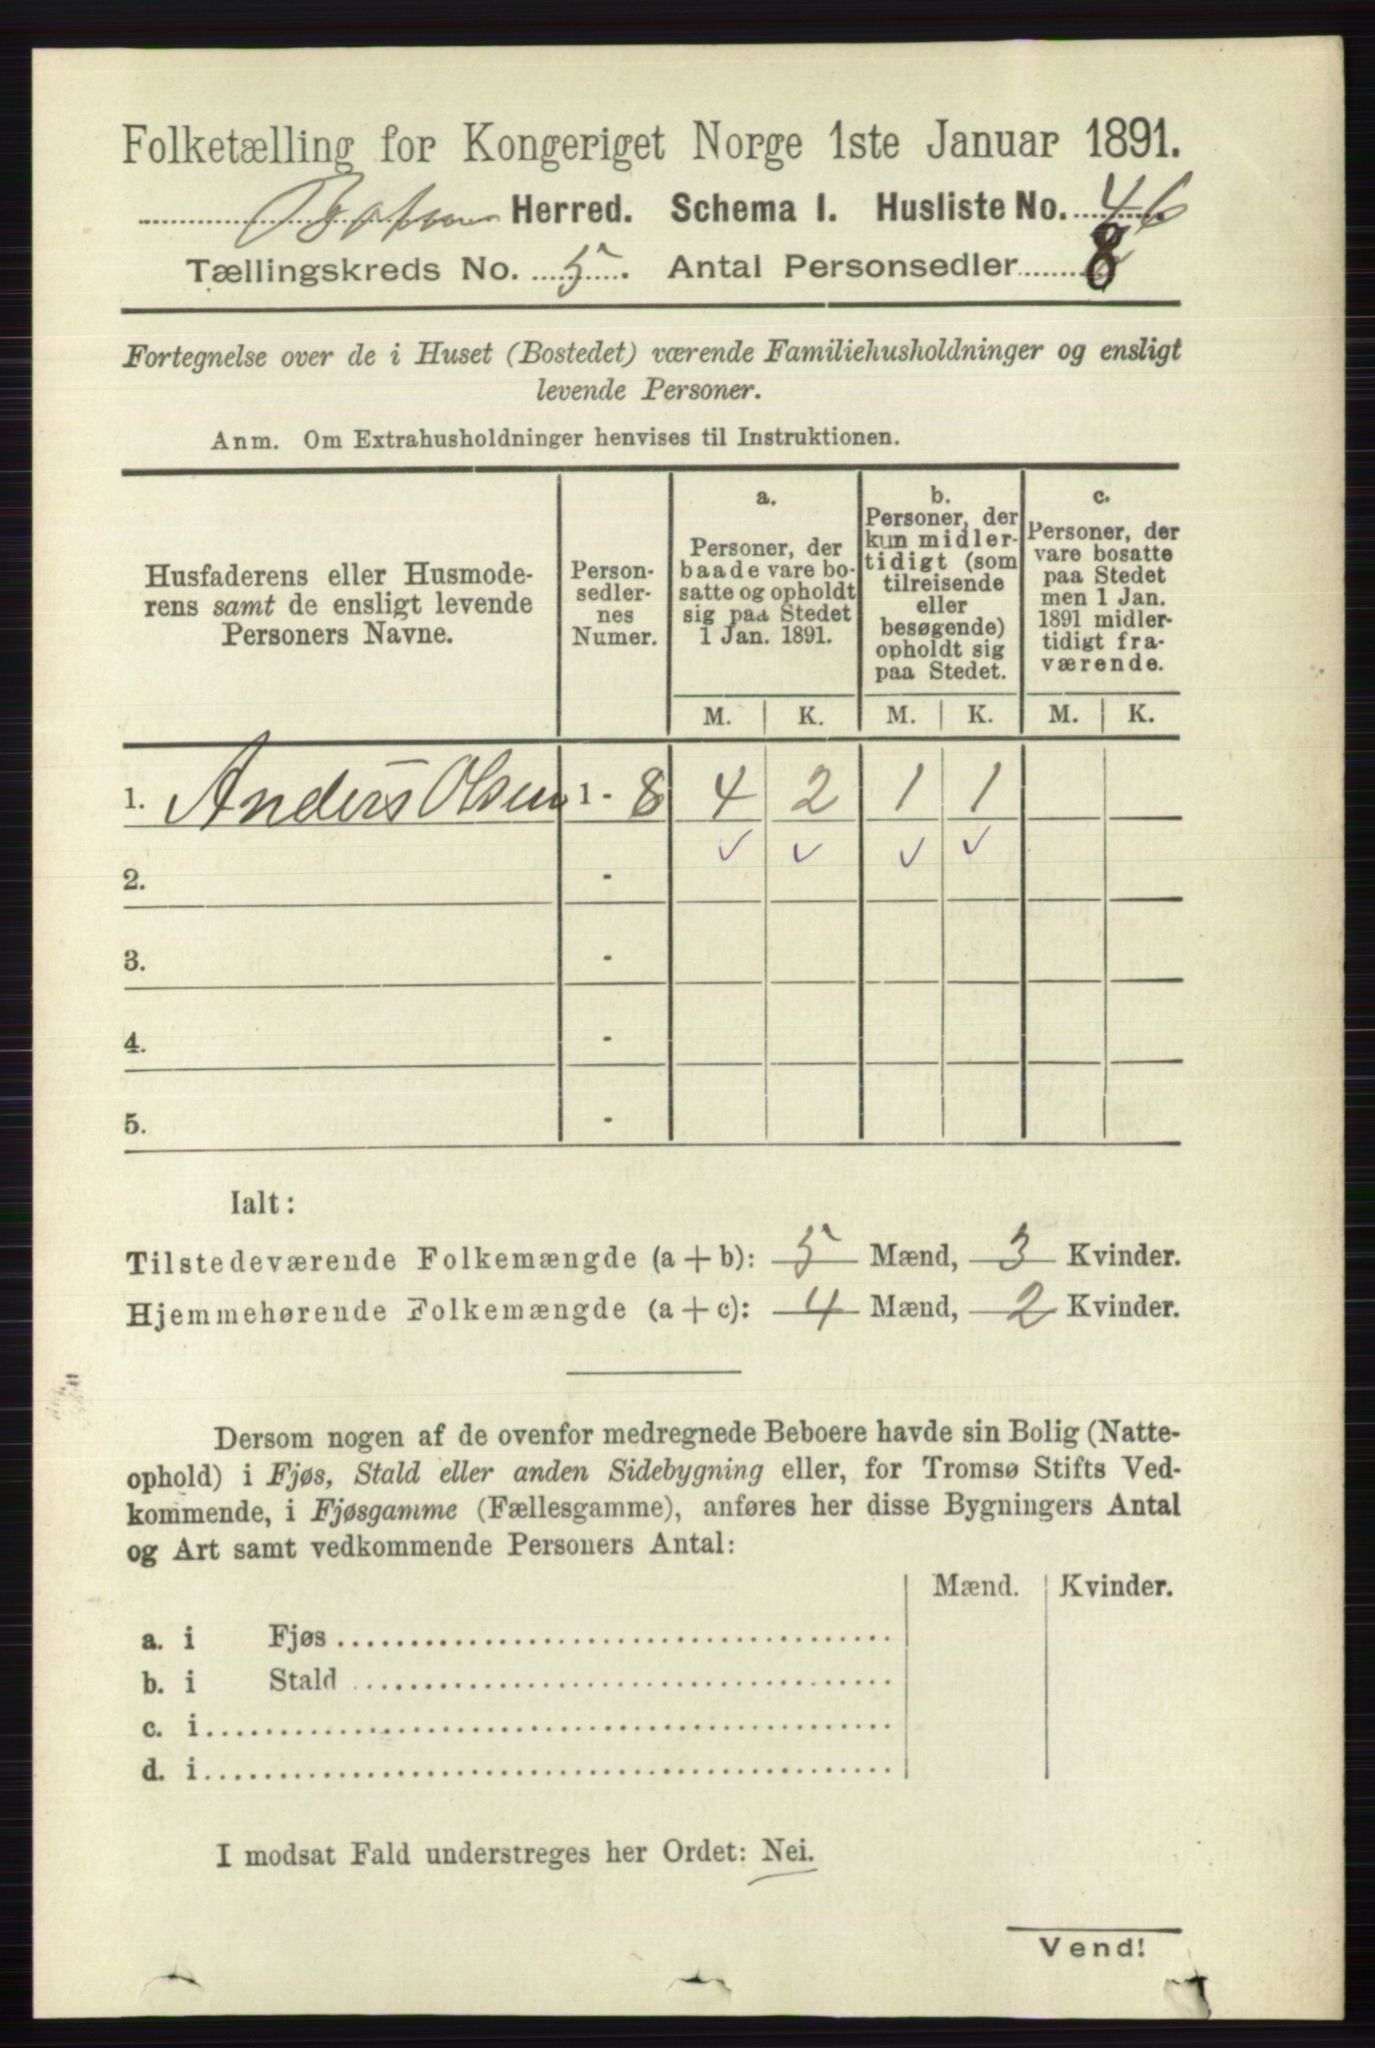 Folketælling for Kongeriget Norge 1ste Januar 1891.
Herred. Schema I. Husliste No. 46
Tællingskreds No. 5. Antal Personsedler 8
Fortegnelse over de i Huset (Bostedet) værende Familiehusholdninger og ensligt
levende Personer.
Anm. Om Extrahusholdninger henvises til Instruktionen.
Husfaderens eller Husmode-
rens samt de ensligt levende
Personers Navne.
Person-
sedler-
nes
Numer.
a.
Personer, der
baade vare bo-
satte og opholdt
sig paa Stedet
1 Jan. 1891.
b.
Personer, der
kun midler-
tidigt (som
tilreisende
eller
besøgende)
opholdt sig
paa Stedet.
c.
Personer, der
vare bosatte
paa Stedet
men 1 Jan.
1891 midler-
tidigt fra-
værende.
M. K. M. K. M. K.
1. Anders Olsen 1 - 8 4 2 1 1
✓ ✓ ✓ ✓
2. -
3. -
4. -
5. -
Ialt:
Tilstedeværende Folkemængde (a + b): 5 Mænd, 3 Kvinder.
Hjemmehørende Folkemængde (a + c): 4 Mænd, 2 Kvinder.
Dersom nogen af de ovenfor medregnede Beboere havde sin Bolig (Natte-
ophold) i Fjøs, Stald eller anden Sidebygning eller, for Tromsø Stifts Ved-
kommende, i Fjøsgamme (Fællesgamme), anføres her disse Bygningers Antal
og Art samt vedkommende Personers Antal:
Mænd. Kvinder.
a. i Fjøs
b. i Stald
c. i
d. i
I modsat Fald understreges her Ordet: Nei.
Vend!